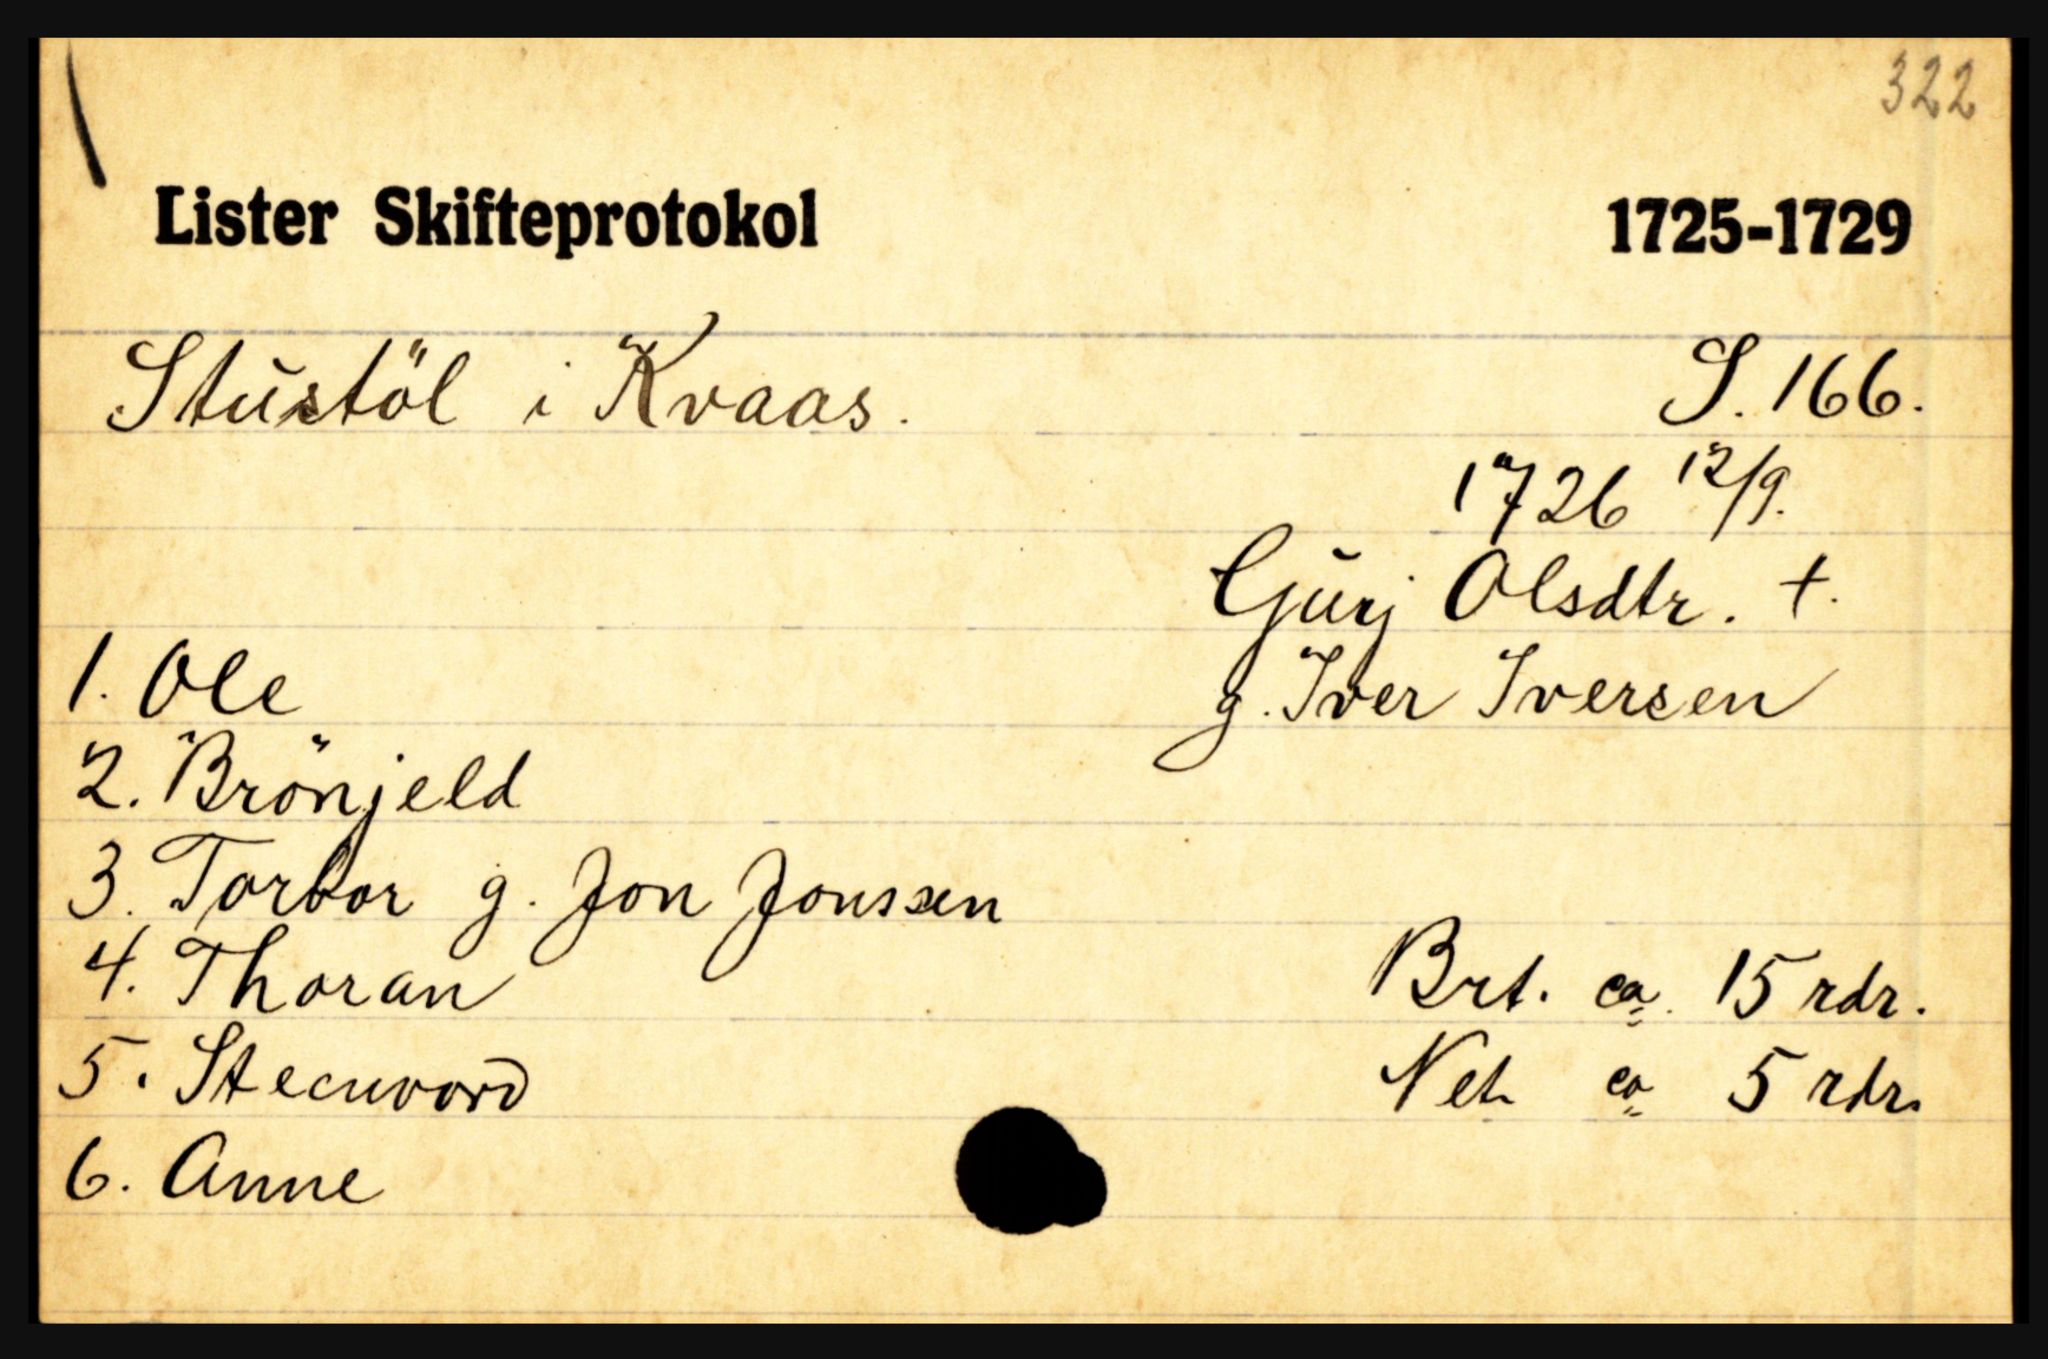 322
Lister Skifteprotokol 1725-1729
Stustöl i Kvaas. S. 166.
1726 12/9.
Gurj Olsdtr. †.
1. Ole g. Iver Iversen
2. Brönjeld
3. Torbor g. Jon Jonssen
4. Thoran Brt. ca. 15 rdr.
5. Stenvord Net. ca 5 rdr.
6. Anne